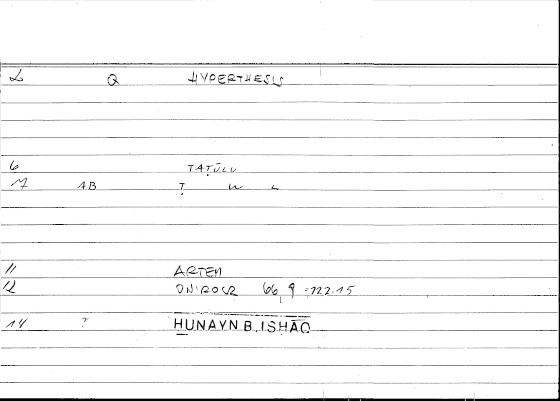 2 Q HYPERTHESIS
6 ṬAṬŪLU
7 AB Ṭ W L
11 ARTEM
12 ONIROCR 66,9 = 122.15
14 ? ḤUNAYN B. ISḤĀQ